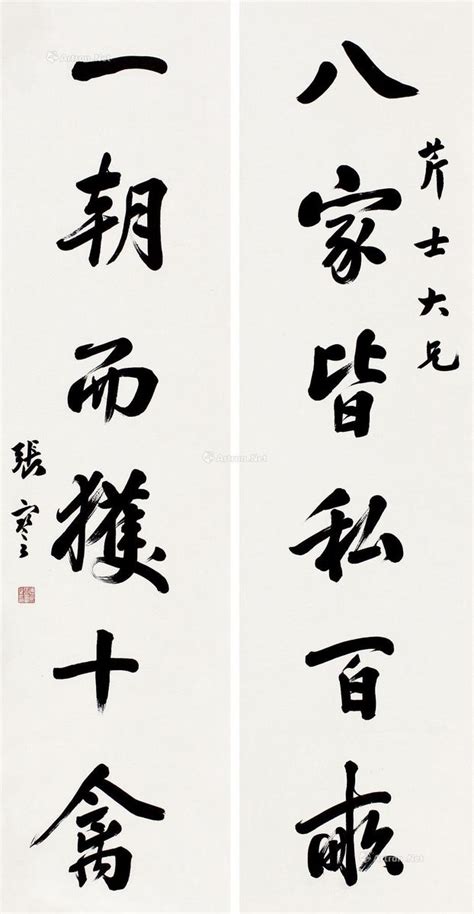 芹士大兄
八家皆私百畝
一朝而獲十禽
張謇
Artron.Net
Artron.Net
Artron.Net